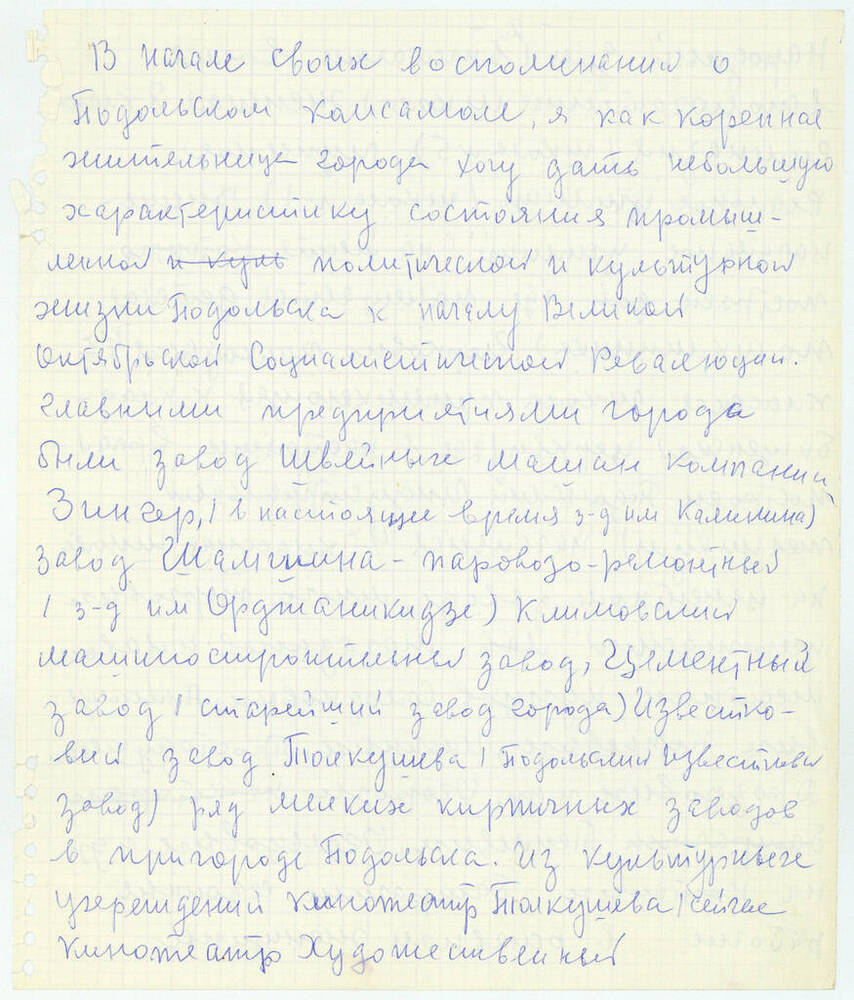 В начале своих воспоминаний о
Подольском комсамоле, я как коренная
жительница города хочу дать небольшую
характеристику состояния промыш-
ленной и куль политической и культурной
жизни Подольска к началу Великой
Октябрьской Социалистической Революции.
Главными предприятиями города
были завод Швейных машин компании
Зингер, / в настоящее время з-д им Калинина)
завод – паровозо-ремонтный
/ з-д им Орджаникидзе) Климовский
машиностроительный завод, Цементный
завод / старейший завод города) Известко-
вый завод Толкушева / Подольский Известковый
завод) ряд мелких кирпичных заводов
в пригороде Подольска. Из культурных
учереждений кинотеатр Толкушева / сейчас
кинотеатр Художественный